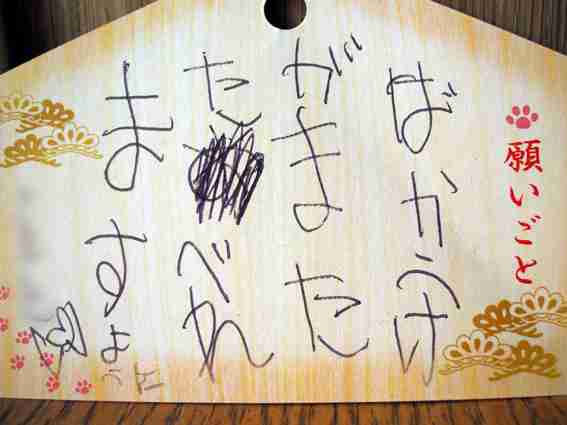 願いごと
ばかうけ
がまた
たべれ
ますように